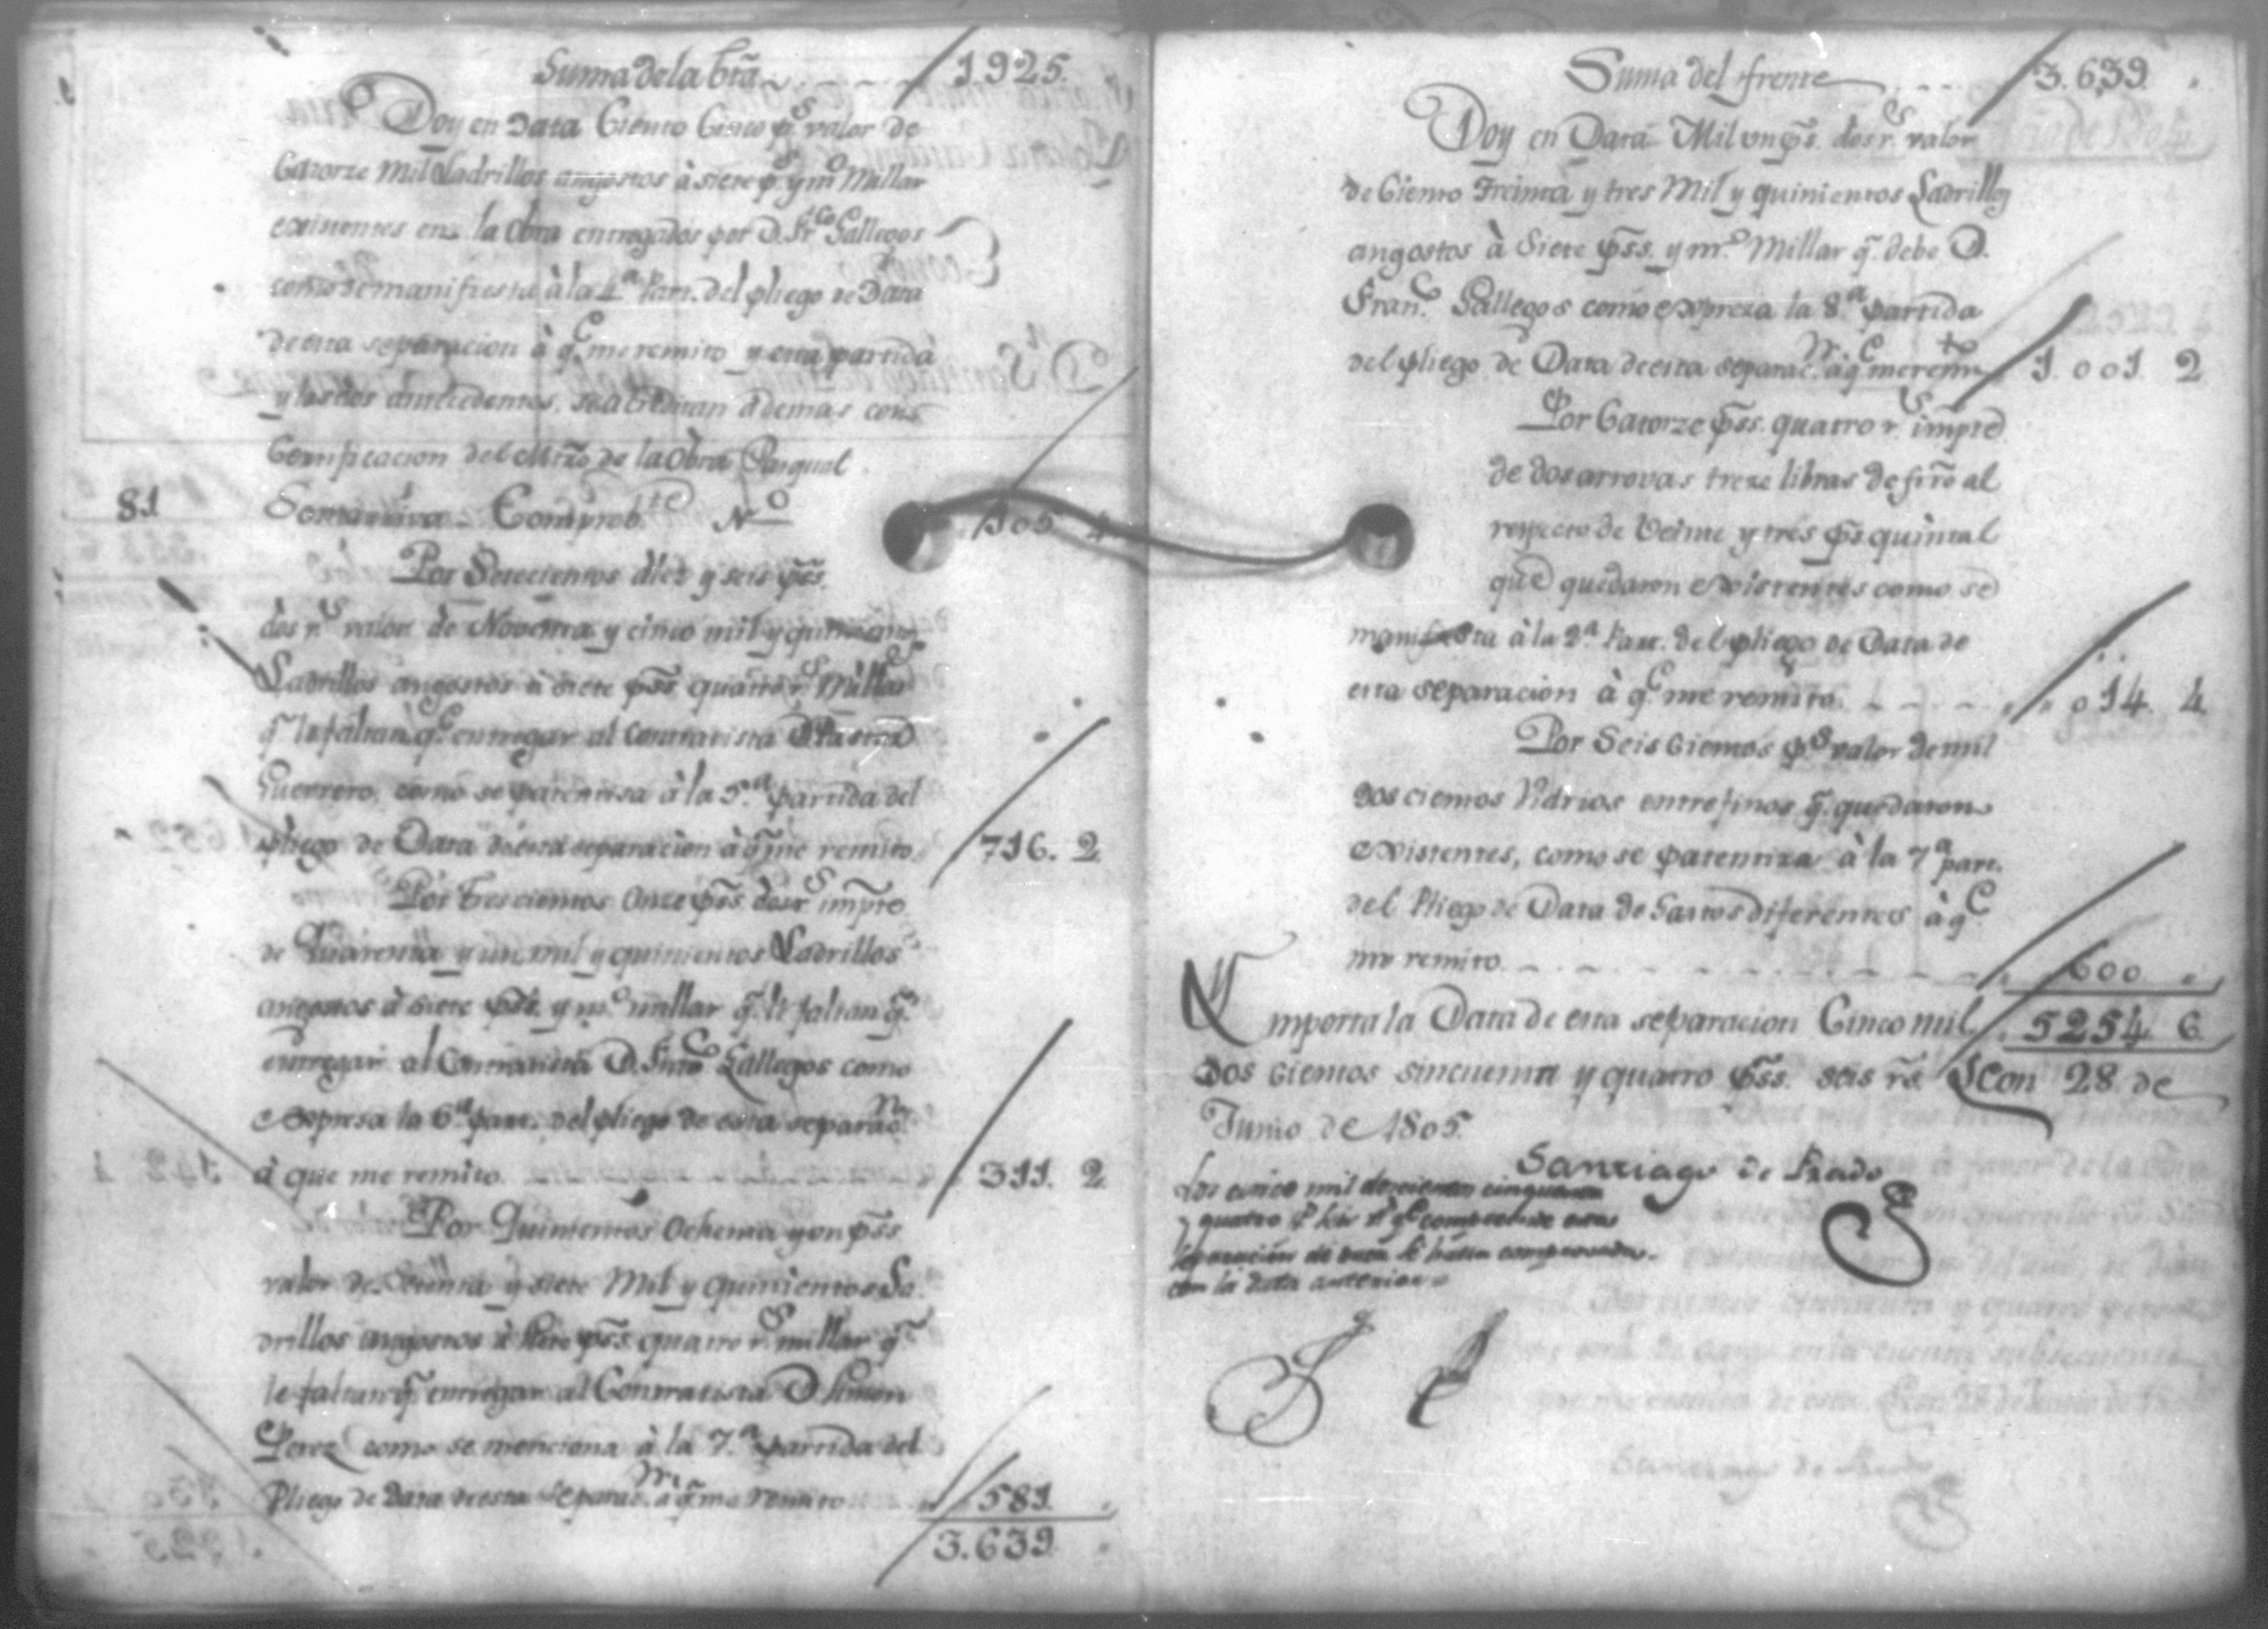 Suma de la bta 1.925.
Doy en Data Ciento Cinco ps valor de
Catorze mil Ladrillos angostos à siete ps. y mo Millar
existentes en la Obra entregados por D. Frco Gallegos
como se manifiesta à la 4a Part. del pliego de Data
de esta separacion à qe me remito y esta partida
y las dos antecedentes, se acreditan ademas con
Certificacion del Mtro de la Obra Pasqual
81 Comprobte No 105 4
Por Setecientos diez y seis pss.
dos rs valor de Noventa y cinco mil y quinientos
Ladrillos angostos à siete pss. quatro rs Millar
qe le faltan qe entregar al Contratista D.
Guerrero, como se patentisa à la 5a partida del
pliego de Data de esta separacion à q me remito 716. 2
Por trescientos Onze pss. dos rs impte
de Quarenta y un mil y quinientos Ladrillos
angostos à siete pss. y mo millar q. le faltan q.
entregar al Contratista D. Franco Gallegos como
expresa la 6a part. del pliego de esta separacn
à que me remito. 311. 2
Por Quinientos Ochenta y un pss
valor de Setenta y siete Mil y quinientos La-
drillos angostos à siete pss. quatro rs millar q
le faltan q entregar al Contratista D. Simon
Perez como se menciona à la 7.a partida del
Pliego de Data de esta separacn à q me remito 581.
3.639
Suma del frente 3.639.
Doy en Data Mil un ps. dos rs valor
de Ciento Treinta y tres Mil y quinientos Ladrillos
angostos à Siete pss. y mo Millar q. debe D.
Franco Gallegos como expreza la 8a partida
del pliego de Data de esta separacn à qe me remito 1.001 2
Por Catorze pss. quatro rs impte
de dos arrovas treze libras de firo al
respecto de Veinte y tres ps quintal
que quedaron existentes como se
manifiesta à la 9a Part. del pliego de Data de
esta separacion à qe me remito. 014. 4
Por Seis Cientos ps valor de mil
dos cientos Vidrios entrefinos q. quedaron
existentes, como se patentiza à la 7a part.
del Pliego de Data de Gastos diferentes à qe
me remito 600
Importa la Data de esta separacion Cinco mil 5254 6
dos cientos sincuenta y quatro pss. seis rs. Leon 28 de
Junio de 1805.
Santiago de Prado
Los cinco mil doscientos cinquenta
y quatro ps seis rs qe comprende esta
separacion de data se hallan comprovados
con la data anterior